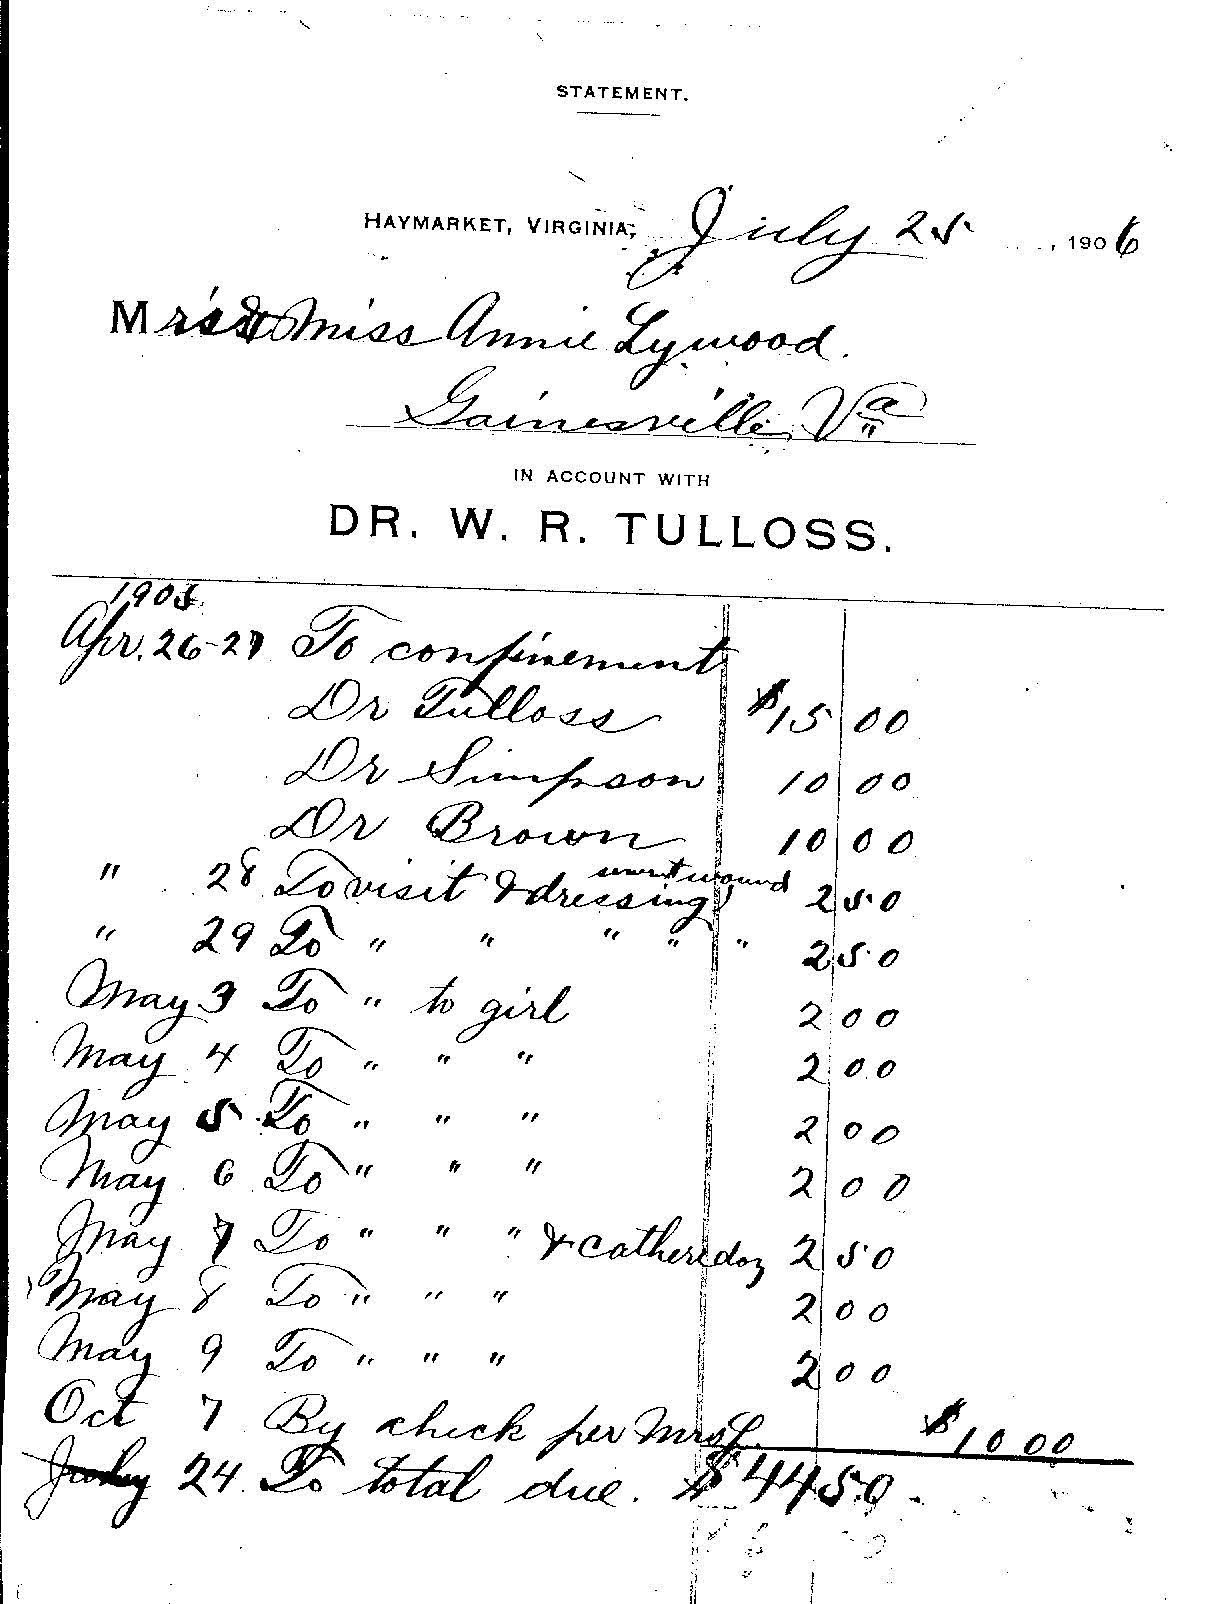 STATEMENT.
HAYMARKET, VIRGINIA, July 25, 1906
M & Miss Annie Lywood.
Gainesville Va
IN ACCOUNT WITH
DR. W. R. TULLOSS.
1905
Apr. 26-27 To confinement
Dr Tulloss $15 00
Dr Simpson 10 00
Dr Brown 10 00
" 28 To visit & dressing wound 2 50
" 29 To " " " " " 2 50
May 3 To " to girl 2 00
May 4 To " " " 2 00
May 5 To " " " 2 00
May 6 To " " " 2 00
May 7 To " " " & 2 50
May 8 To " " " 2 00
May 9 To " " " 2 00
Oct 7 By check per Mrs L. $10 00
July 24 To total due. $44 50